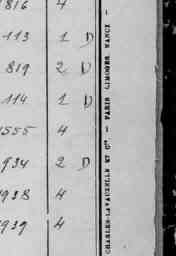 1816 4
113 1 D
819 2 D
114 1 D
1555 4
934 2 D
1938 4
1939 4
CHARLES-LAVAUZELLE ET Cie. — PARIS LIMOGES, NANCY —